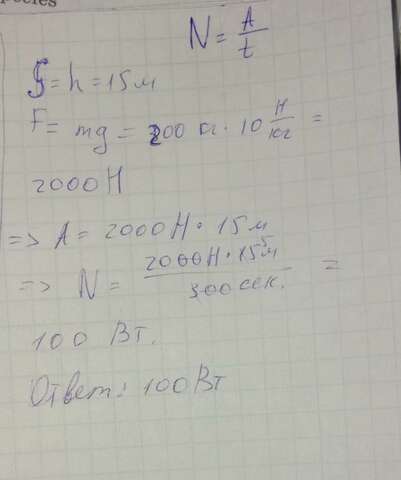 N = A/t
S = h = 15 м
F = mg = 200 кг · 10 Н/кг =
2000 Н
=> A = 2000 Н · 15 м
=> N = 2000 Н · 15 м / 300 сек. =
100 Вт.
Ответ: 100 Вт